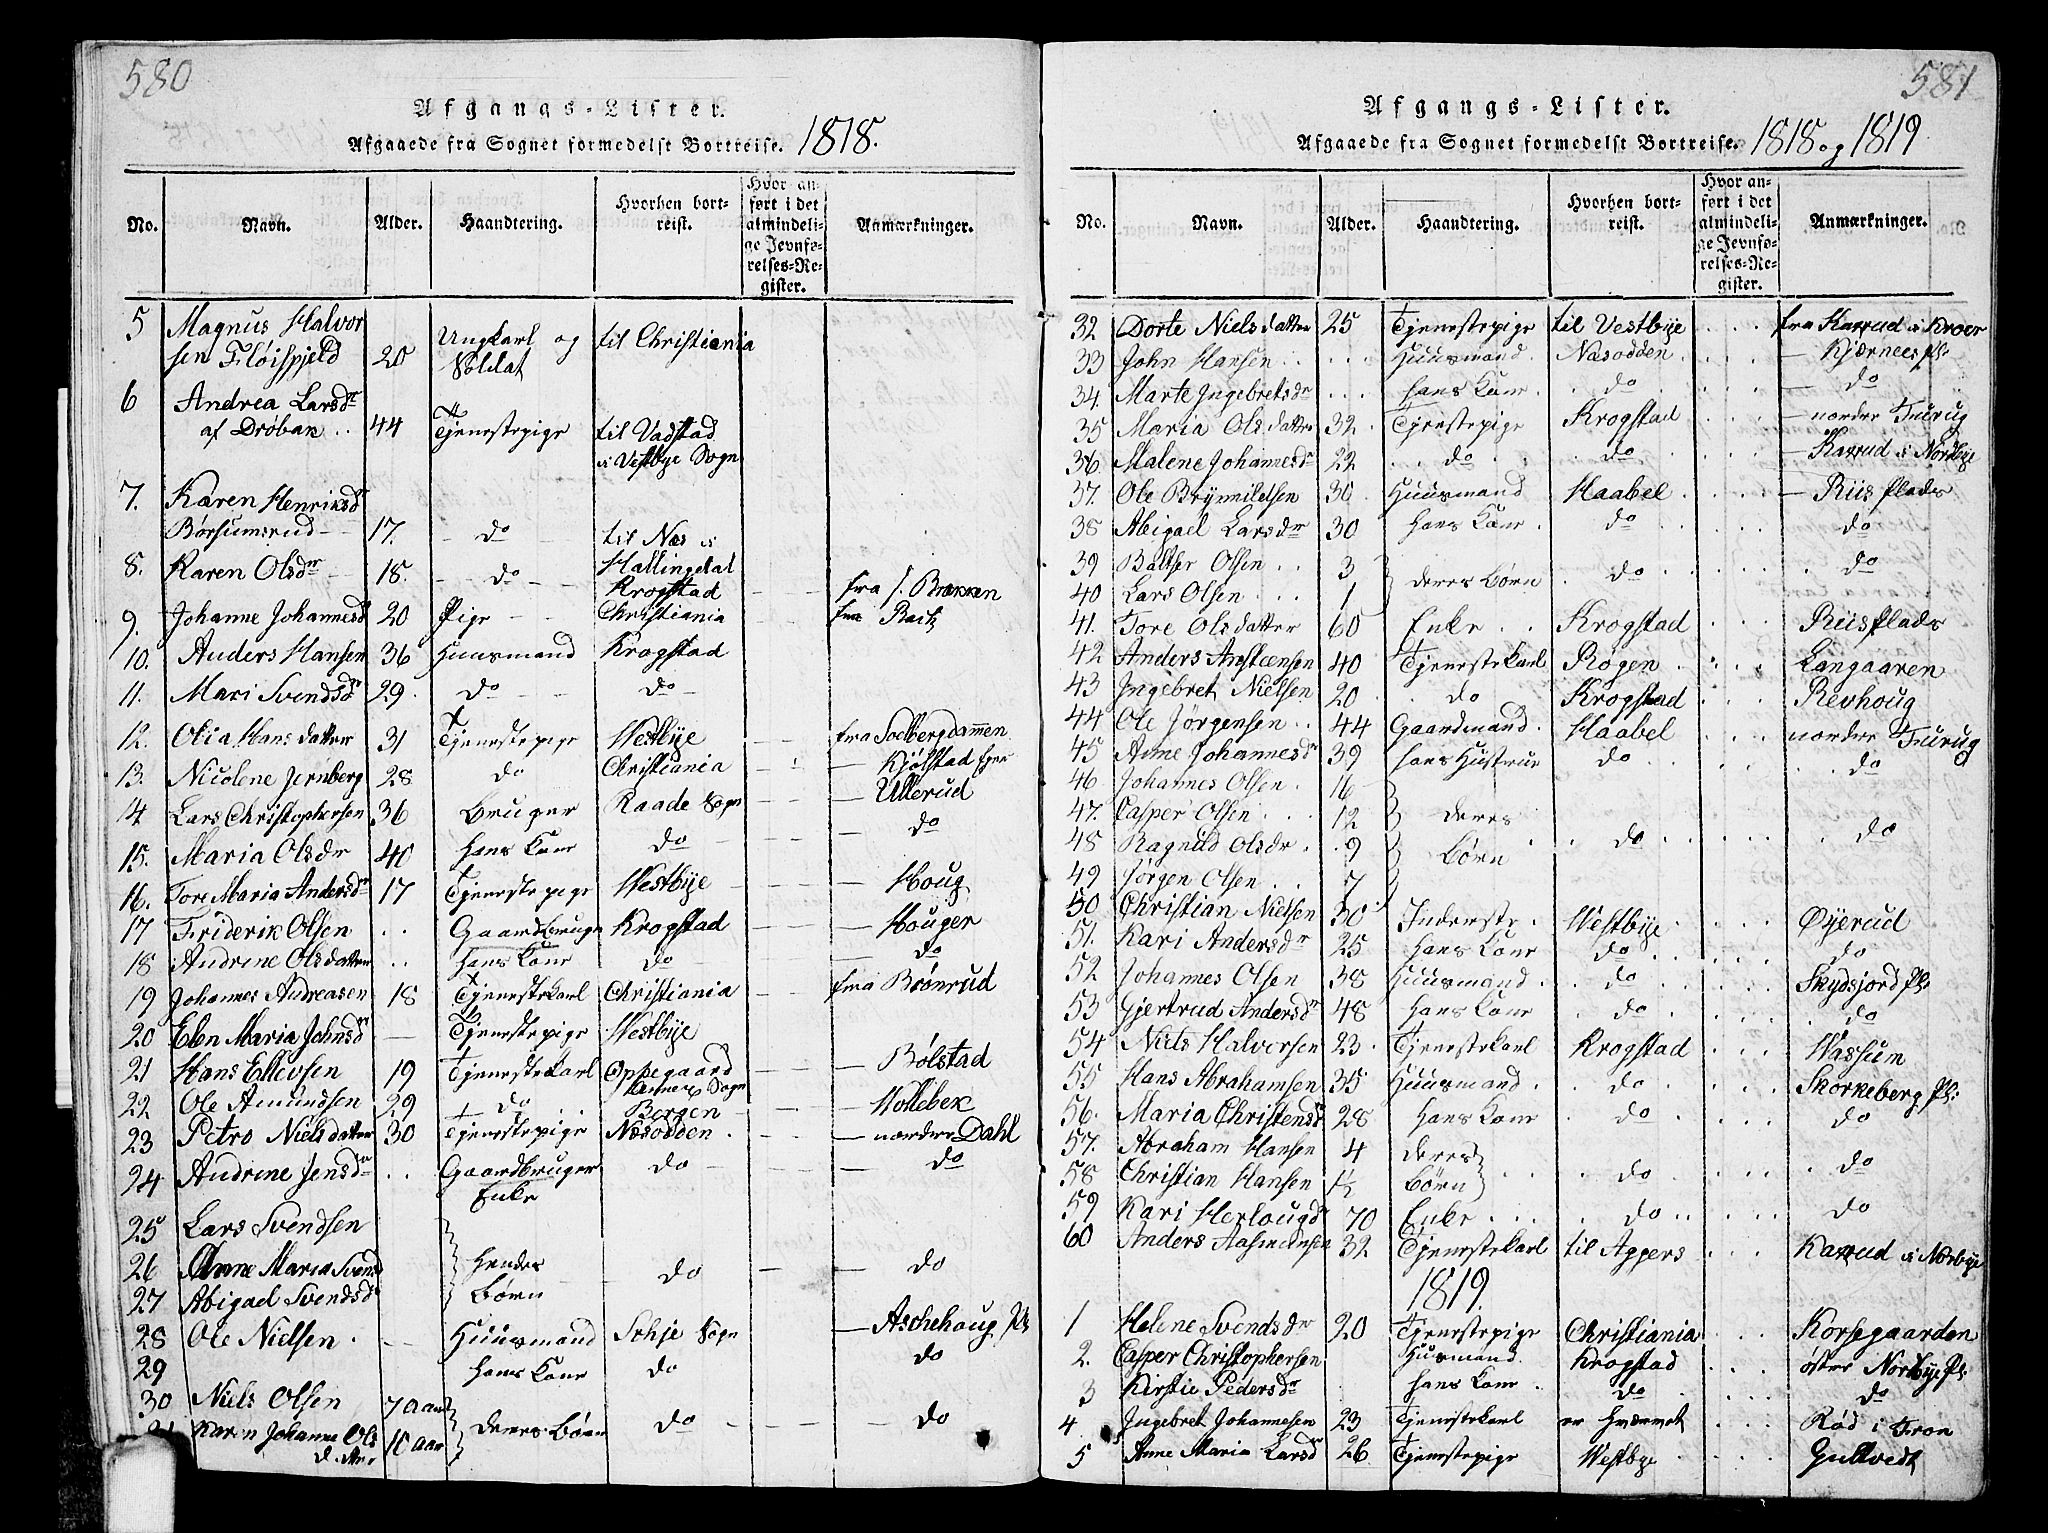 580
Afgangs-Lister.
Afgaaede fra Sognet formedelst Bortreise. 1818.
No. Navn. Alder. Haandtering. Hvorhen bortreist. Hvor anført i det almindelige Jevnførelses-Register. Anmærkninger.
5 Magnus Halvor
sen Fløispjeld 20 Ungkarl og Soldat til Christiania
6 Andrea Larsdr
af Drøbak .. 44 Tjenestepige til Vadstad
i Vestbye Sogn
7. Karen Henriksdr
Børsumsrud 17. do til Næs i
Hallingdal
8. Karen Olsdr 18. do Krogstad fra s. Brekken
9. Johanne Johannesd 20 Pige Christiania fra Bach
10. Anders Hansen 36 Huusmand Krogstad
11. Mari Svendsdr 29. do do
12. Olia Hansdatter 31 Tjenestepige Westbye fra Sodbergdammen
13. Nicolene Jernberg 28 do Christiania Kjølstad Eger
14 Lars Christophersen 36 Bruger Raade Sogn Ullerud
15. Maria Olsdr 40 hans Kone do do
16. Tore Maria Andersdr 17 Tjenestepige Westbye Houg
17 Friderik Olsen .. Gaardbruger Krogstad Houger
18 Andrine Olsdatter .. hans Kone do do
19 Johannes Andreasen 18 Tjenestekarl Christiania fra Brønrud
20 Elen Maria Johnsdr — Tjenestepige Westbye
21 Hans Ellevsen 19 Tjenestekarl Oppegaard
Annex Sogn Bølstad
22 Ole Amundsen 29 do Bergen Hollebek
23 Petro Nielsdatter 30 Tjenestepige Næsodden nordre Dahl
24 Andrine Jensdr .. Gaardbruger Enke do do
25 Lars Svendsen
26 Anne Maria Svend hendes do do
27 Abigael Svendsdr Børn
28 Ole Nielsen . — Huusmand Sohje Sogn Aschehoug Pl:
29 hans Kone do do
30 Niels Olsen 7 aar
Karen Johanne Ols 10 aar deres Børn do do
581
Afgangs-Lister.
Afgaaede fra Sognet formedelst Bortreise. 1818 og 1819
No. Navn. Alder. Haandtering. Hvorhen bortreist. Hvor anført i det almindelige Jevnførelses-Register. Anmærkninger.
32 Dorte Nielsdatter 25 Tjenestepige til Vestbye fra Karrud i Kroer
33 John Hansen ... Huusmand. Nasodden Kjærnees Pl:
34. Marte Ingebretsdr ... hans Kone. do do
35 Maria Olsdatter 32. Tjenestepige Krogstad nordre Furug
36. Malene Johannesdr 22 do do Karrud i Nordbye
37. Ole Brynnildsen 30 Huusmand Haabel Riis Plads
38 Abigael Larsdr 30 hans Kone. do do
39 Baltser Olsen .. 3 deres børn do do
40 Lars Olsen ... 1
41. Tore Olsdatter 60 Enke .. Krogstad Riis Plads
42 Anders Anstensen 40 Tjenestekarl Rogen Langaaren
43 Ingebret Nielsen 20 do Krogstad Revhoug
44 Ole Jørgensen .. 44 Gaardmand. Haabel nordre Furug
45 Anne Johannesdr 39 hans Hustrue do do
46 Johannes Olsen . 16
47. Casper Olsen ... 12 deres
48 Ragnild Olsdr . 9 børn do do
49 Jørgen Olsen .. 7
50 Christian Nielsen 30 Inderste. Westbye Øyerud
51. Kari Andersdr 25 hans Kone do do
52 Johannes Olsen 38 Huusmand. do Skydsjord Pl:
53 Gjertrud Andersdr 48 hans Kone do do
54 Niels Halvorsen 23. Tjenestekarl Krogstad Wassum
55 Hans Abrahamsen 35 Huusmand. do Skorkeberg Pl:
56. Maria Christensdr 28 hans Kone do do
57. Abraham Hansen 4 deres
58 Christian Hansen 1½ børn do do
59 Kari Herlougdr 70 Enke ... do .. do
60 Anders Aasmunsen 32 Tjenestekarl til Aggers Karrud i Norbye
1819.
1 Helene Svendsdr 20 Tjenestepige Christiania Korsegaarden
2. Casper Christophersen Husmand. Krogstad øster Nordbye Pl:
3 Kirstie Pedersdr hans Kone. do do
4 Ingebret Johannesen 23 Tjenestekarl er hvervet Rød i Fron
5 Anne Maria Larsd 26 Tjenestepige Westbye Gultvedt